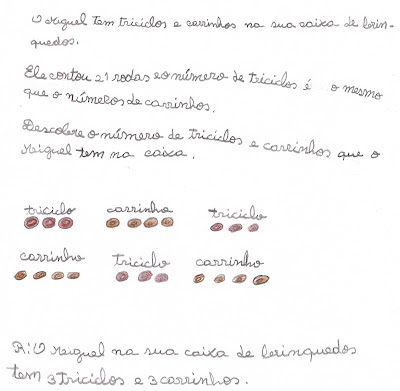 O Miguel tem triciclos e carrinhos na sua caixa de brin-
quedos.
Ele contou 21 rodas e o número de triciclos é o mesmo
que o números de carrinhos.
Descobre o número de triciclos e carrinhos que o
Miguel tem na caixa.
triciclo carrinho triciclo
carrinho triciclo carrinho
R: O Miguel na sua caixa de brinquedos
tem 3 triciclos e 3 carrinhos.